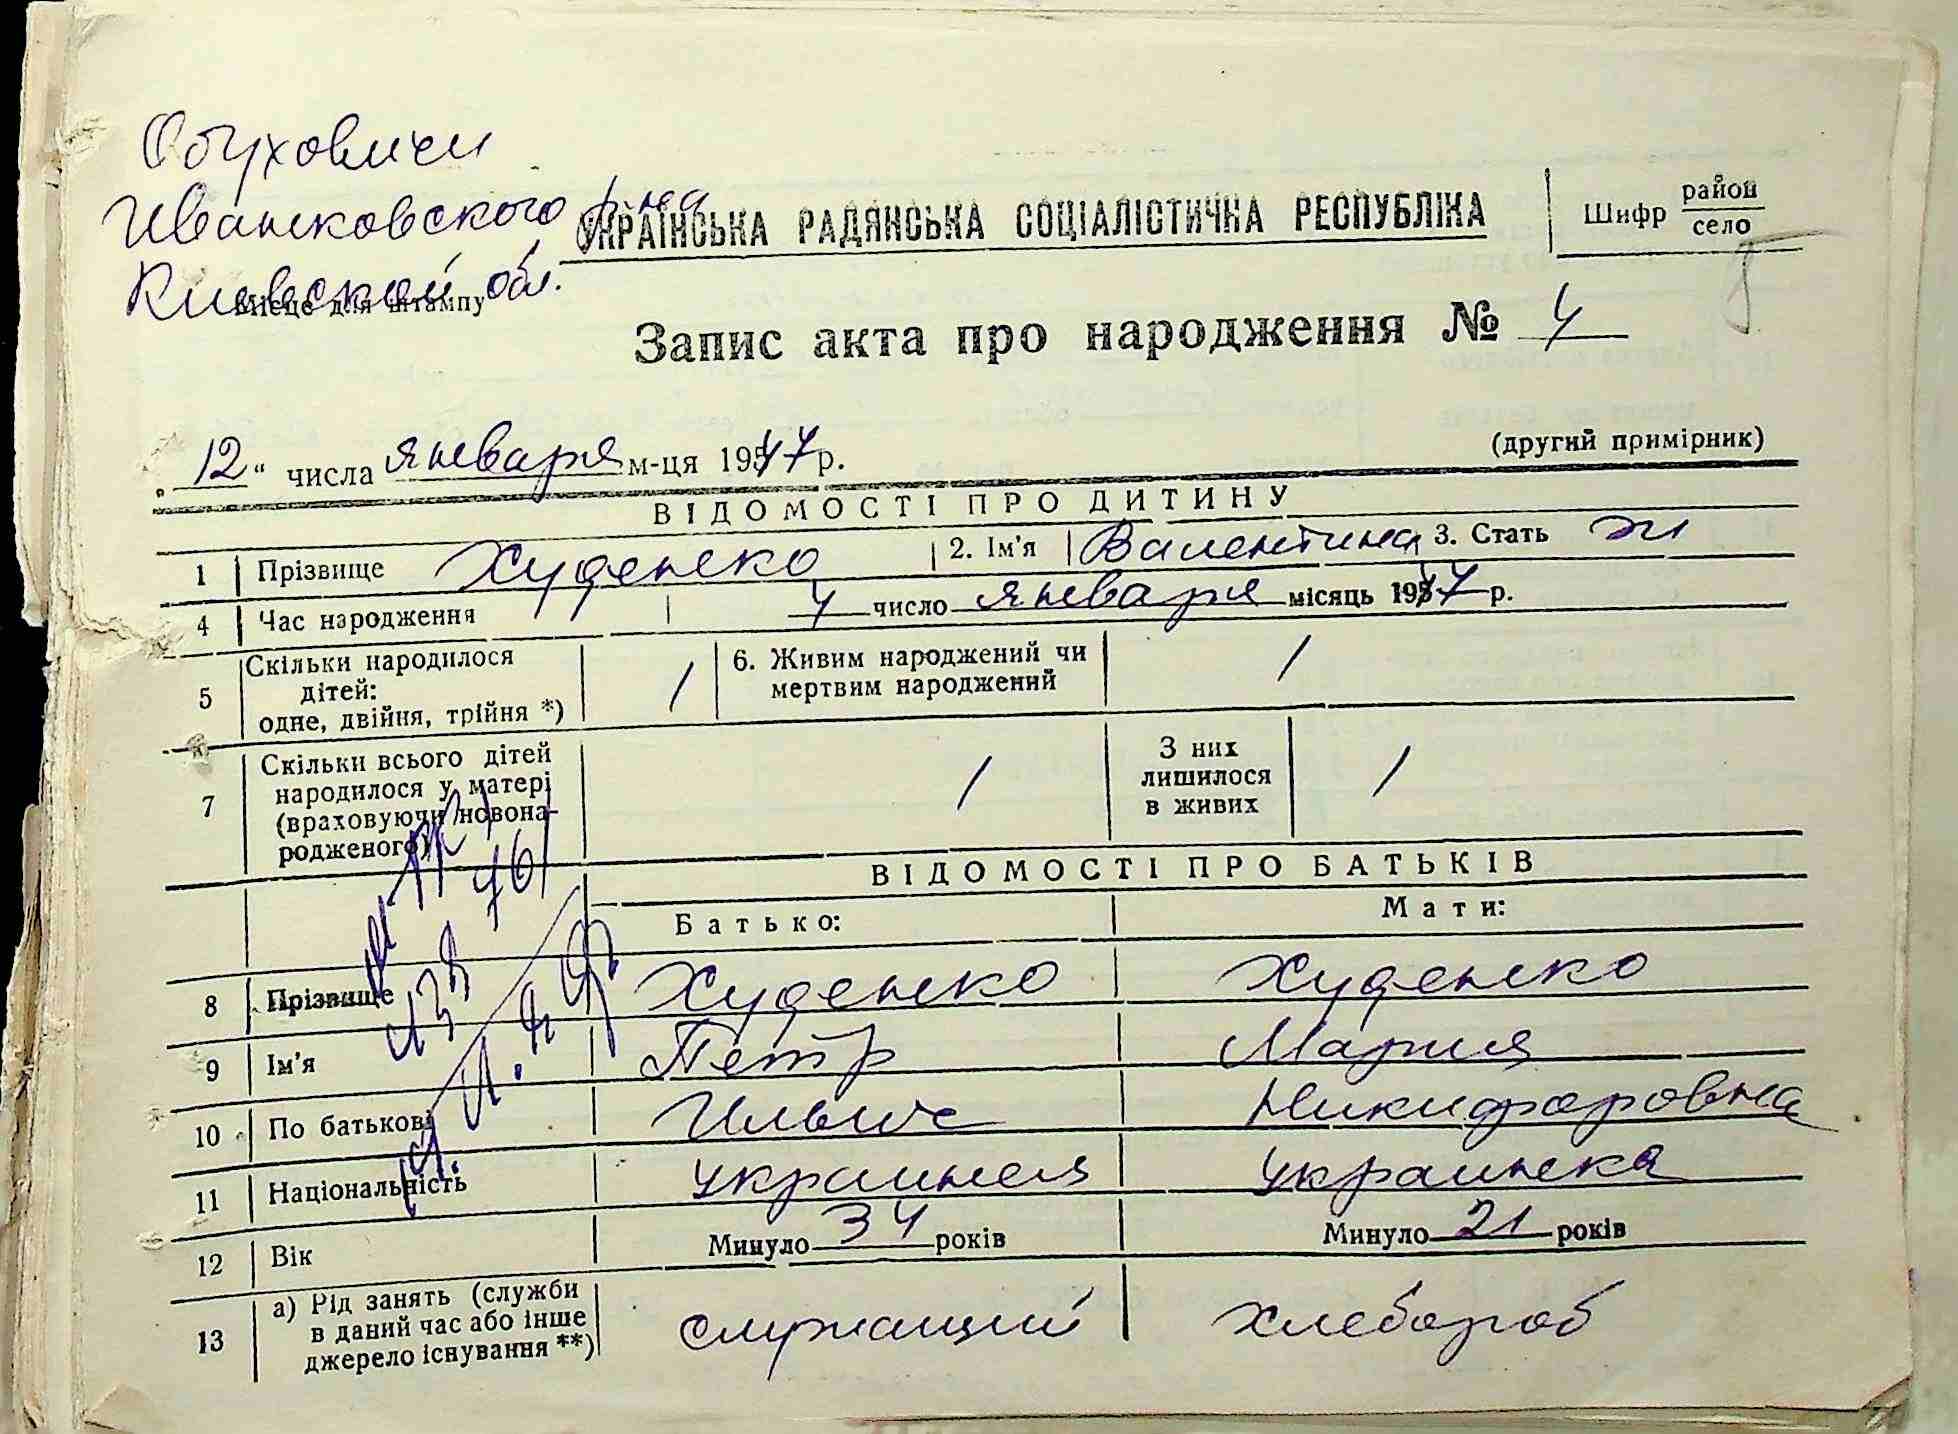 Обуховичи
Иванковского р-на
Киевской обл.
Місце для штампу
УКРАЇНСЬКА РАДЯНСЬКА СОЦІАЛІСТИЧНА РЕСПУБЛІКА
Шифр район село
Запис акта про народження № 4
(другий примірник)
„12“ числа января м-ця 1947 р.
ВІДОМОСТІ ПРО ДИТИНУ
1 Прізвище Худенко 2. Ім'я Валентина 3. Стать ж
4 Час народження 4 число января місяць 1947 р.
5 Скільки народилося дітей: одне, двійня, трійня *) / 6. Живим народжений чи мертвим народжений /
7 Скільки всього дітей народилося у матері (враховуючи новонародженого) / З них лишилося в живих /
ВІДОМОСТІ ПРО БАТЬКІВ
Батько: Мати:
8 Прізвище Худенко Худенко
9 Ім'я Петр Мария
10 По батькові Ильич Никифоровна
11 Національність украинец украинка
12 Вік Минуло 34 років Минуло 21 років
13 а) Рід занять (служби в даний час або інше джерело існування **) служащий хлебороб